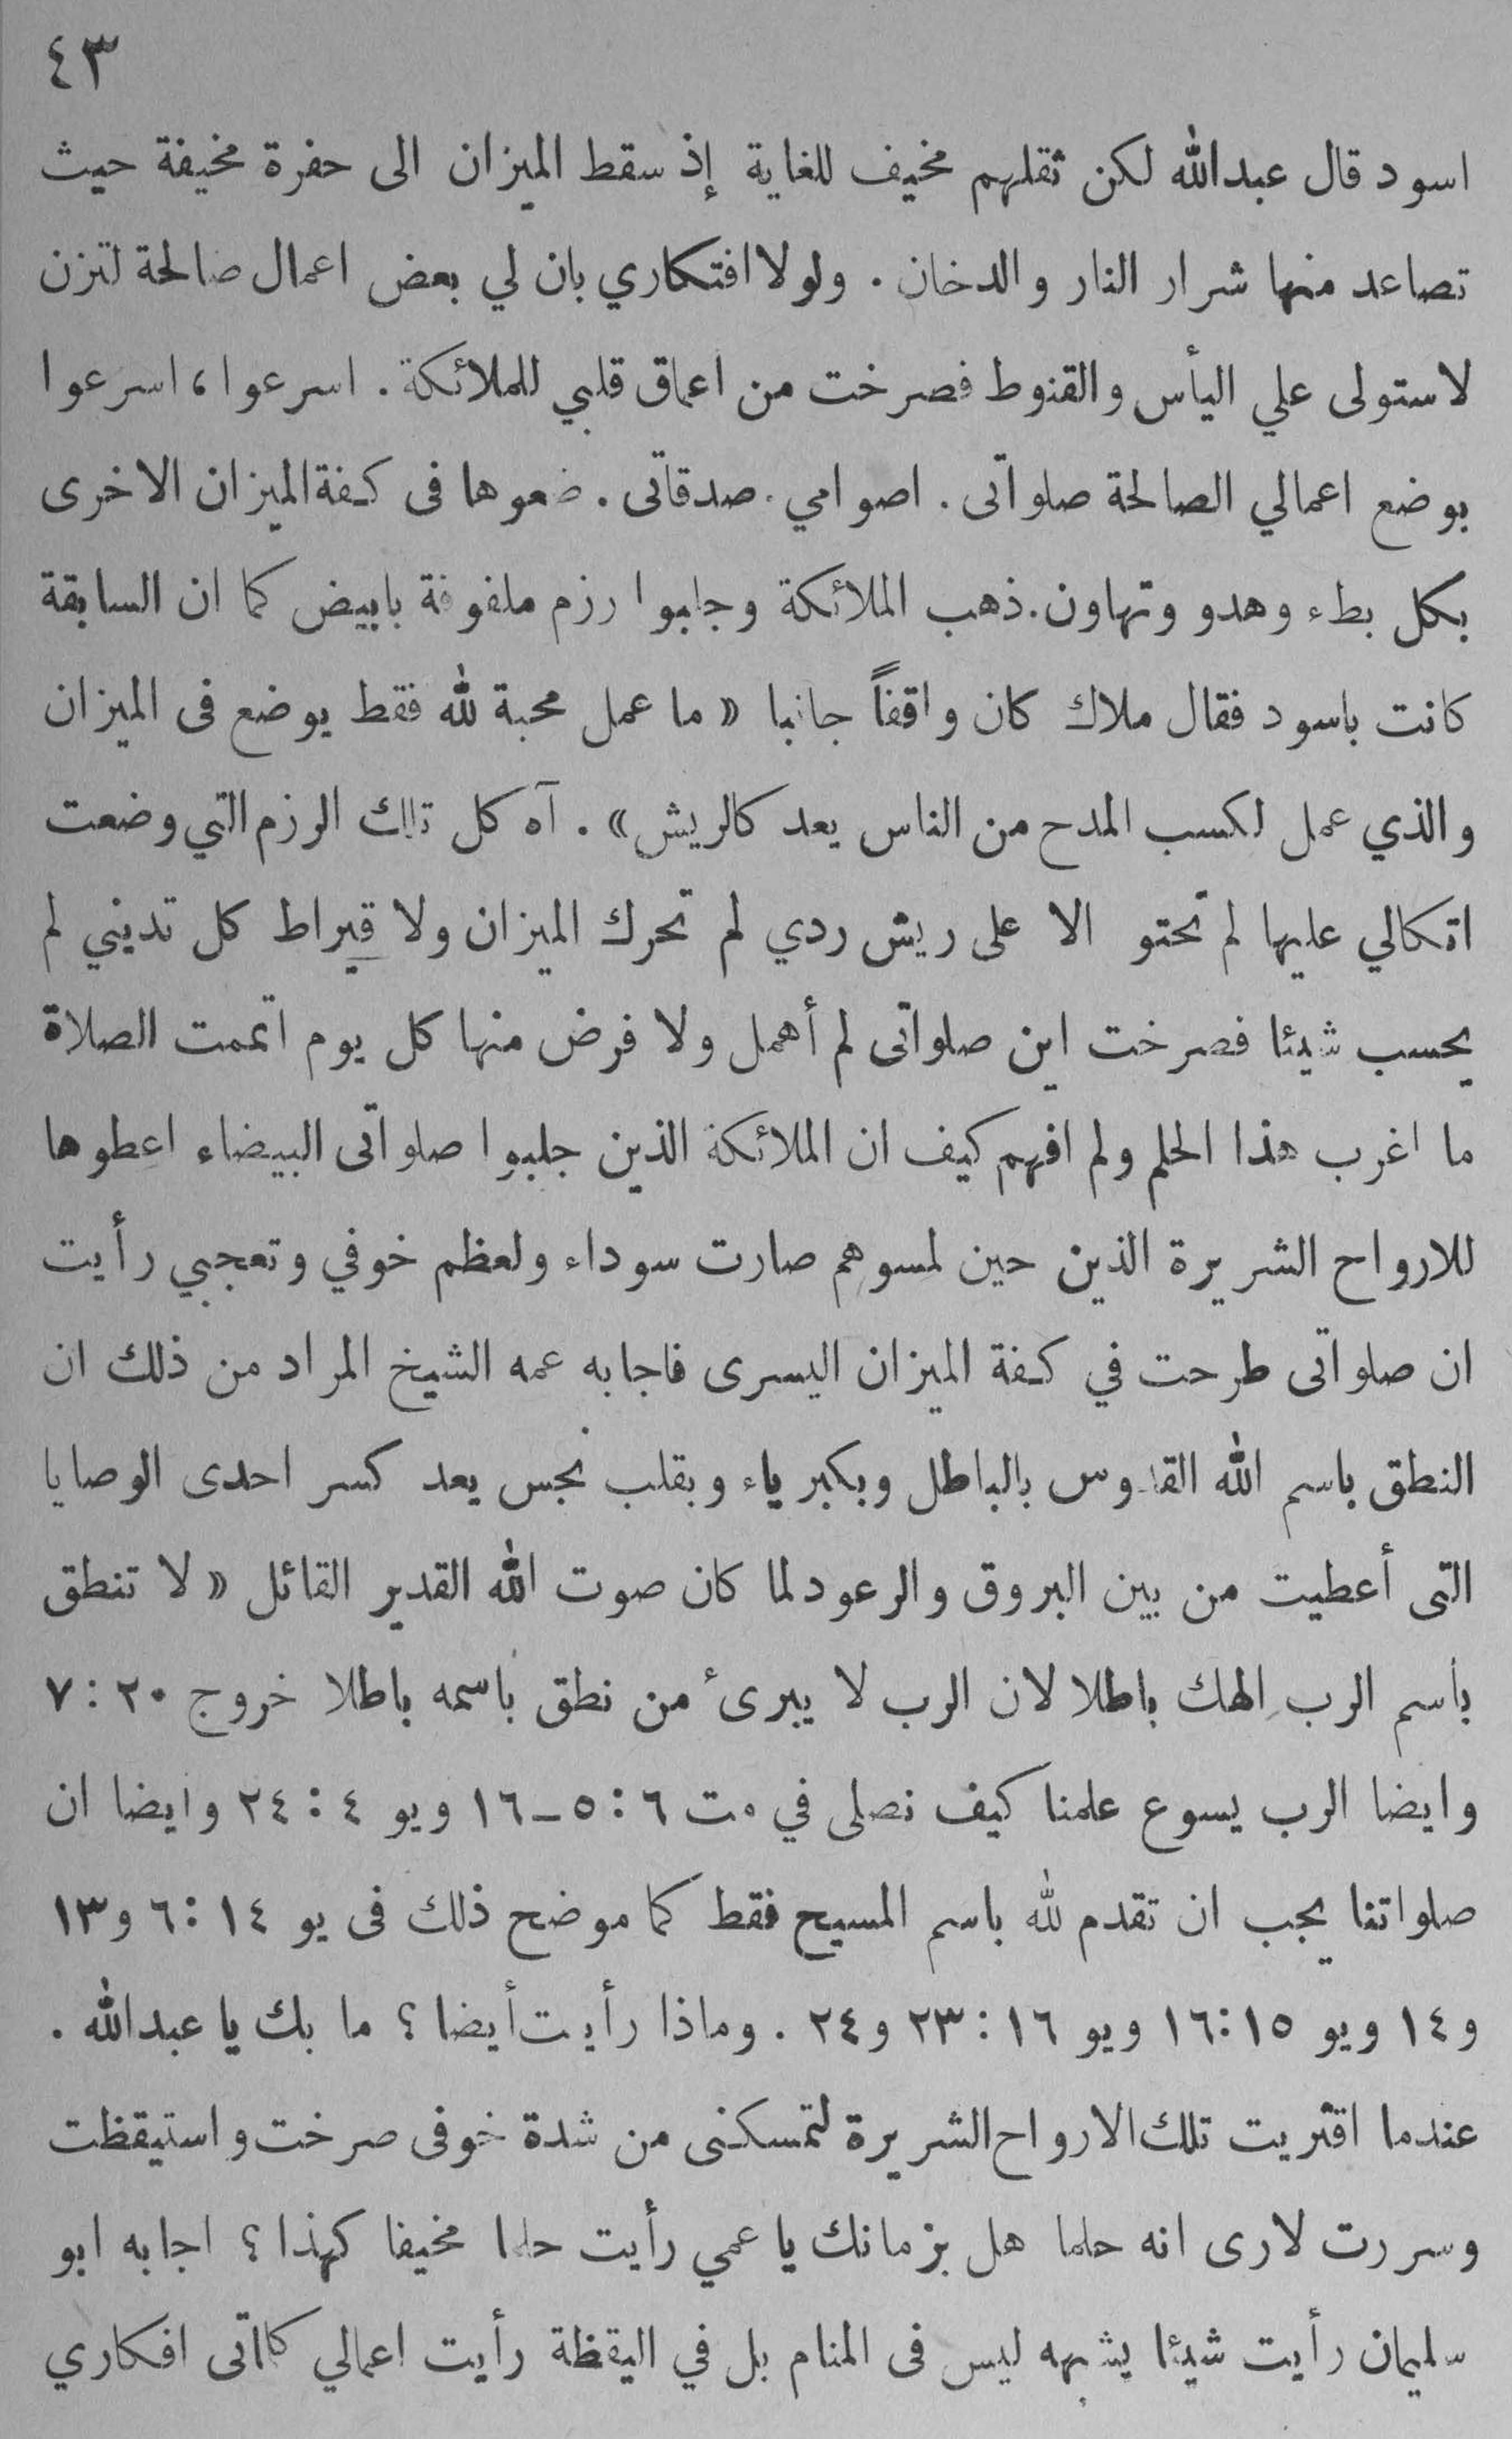 ٤٣
اسود قال عبدالله لكن ثقلهم مخيف للغاية إذ سقط الميزان الى حفرة مخيفة حيث
تصاعد منها شرار النار والدخان . ولولا افتكاري بان لي بعض اعمال صالحة لتزن
لاستولى علي اليأس والقنوط فصرخت من اعماق قلبي للملائكة . اسرعوا ، اسرعوا
بوضع اعمالي الصالحة صلواتى . اصوامي . صدقاتى . ضعوها فى كفة الميزان الاخرى
بكل بطء وهدو وتهاون . ذهب الملائكة وجابوا رزم ملفوفة بابيض كما ان السابقة
كانت باسود فقال ملاك كان واقفاً جانبا « ما عمل محبة لله فقط يوضع فى الميزان
والذي عمل لكسب المدح من الناس يعد كالريش » . آه كل تلك الرزم التي وضعت
اتكالي عليها لم تحتو الا على ريش ردي لم تحرك الميزان ولا قيراط كل تديني لم
يحسب شيئا فصرخت اين صلواتى لم أهمل ولا فرض منها كل يوم اتممت الصلاة
ما اغرب هذا الحلم ولم افهم كيف ان الملائكة الذين جلبوا صلواتى البيضاء اعطوها
للارواح الشريرة الذين حين لمسوهم صارت سوداء ولعظم خوفي وتعجبي رأيت
ان صلواتى طرحت في كفة الميزان اليسرى فاجابه عمه الشيخ المراد من ذلك ان
النطق باسم الله القدوس بالباطل وبكبرياء وبقلب نجس يعد كسر احدى الوصايا
التى أعطيت من بين البروق والرعود لما كان صوت الله القدير القائل « لا تنطق
بأسم الرب الهك باطلا لان الرب لا يبرئ من نطق باسمه باطلا خروج ٢٠ : ٧
وايضا الرب يسوع علمنا كيف نصلى في مت ٦ : ٥ – ١٦ ويو ٤ : ٢٤ وايضا ان
صلواتنا يجب ان تقدم لله باسم المسيح فقط كما موضح ذلك فى يو ١٤ : ٦ و١٣
و١٤ ويو ١٥ : ١٦ ويو ١٦ : ٢٣ و٢٤ . وماذا رأيت أيضا ؟ ما بك يا عبدالله .
عندما اقتربت تلك الارواح الشريرة لتمسكنى من شدة خوفى صرخت واستيقظت
وسررت لارى انه حلما هل بزمانك يا عمي رأيت حلما مخيفا كهذا ؟ اجابه ابو
سليمان رأيت شيئا يشبهه ليس فى المنام بل في اليقظة رأيت اعمالي كلماتى افكاري